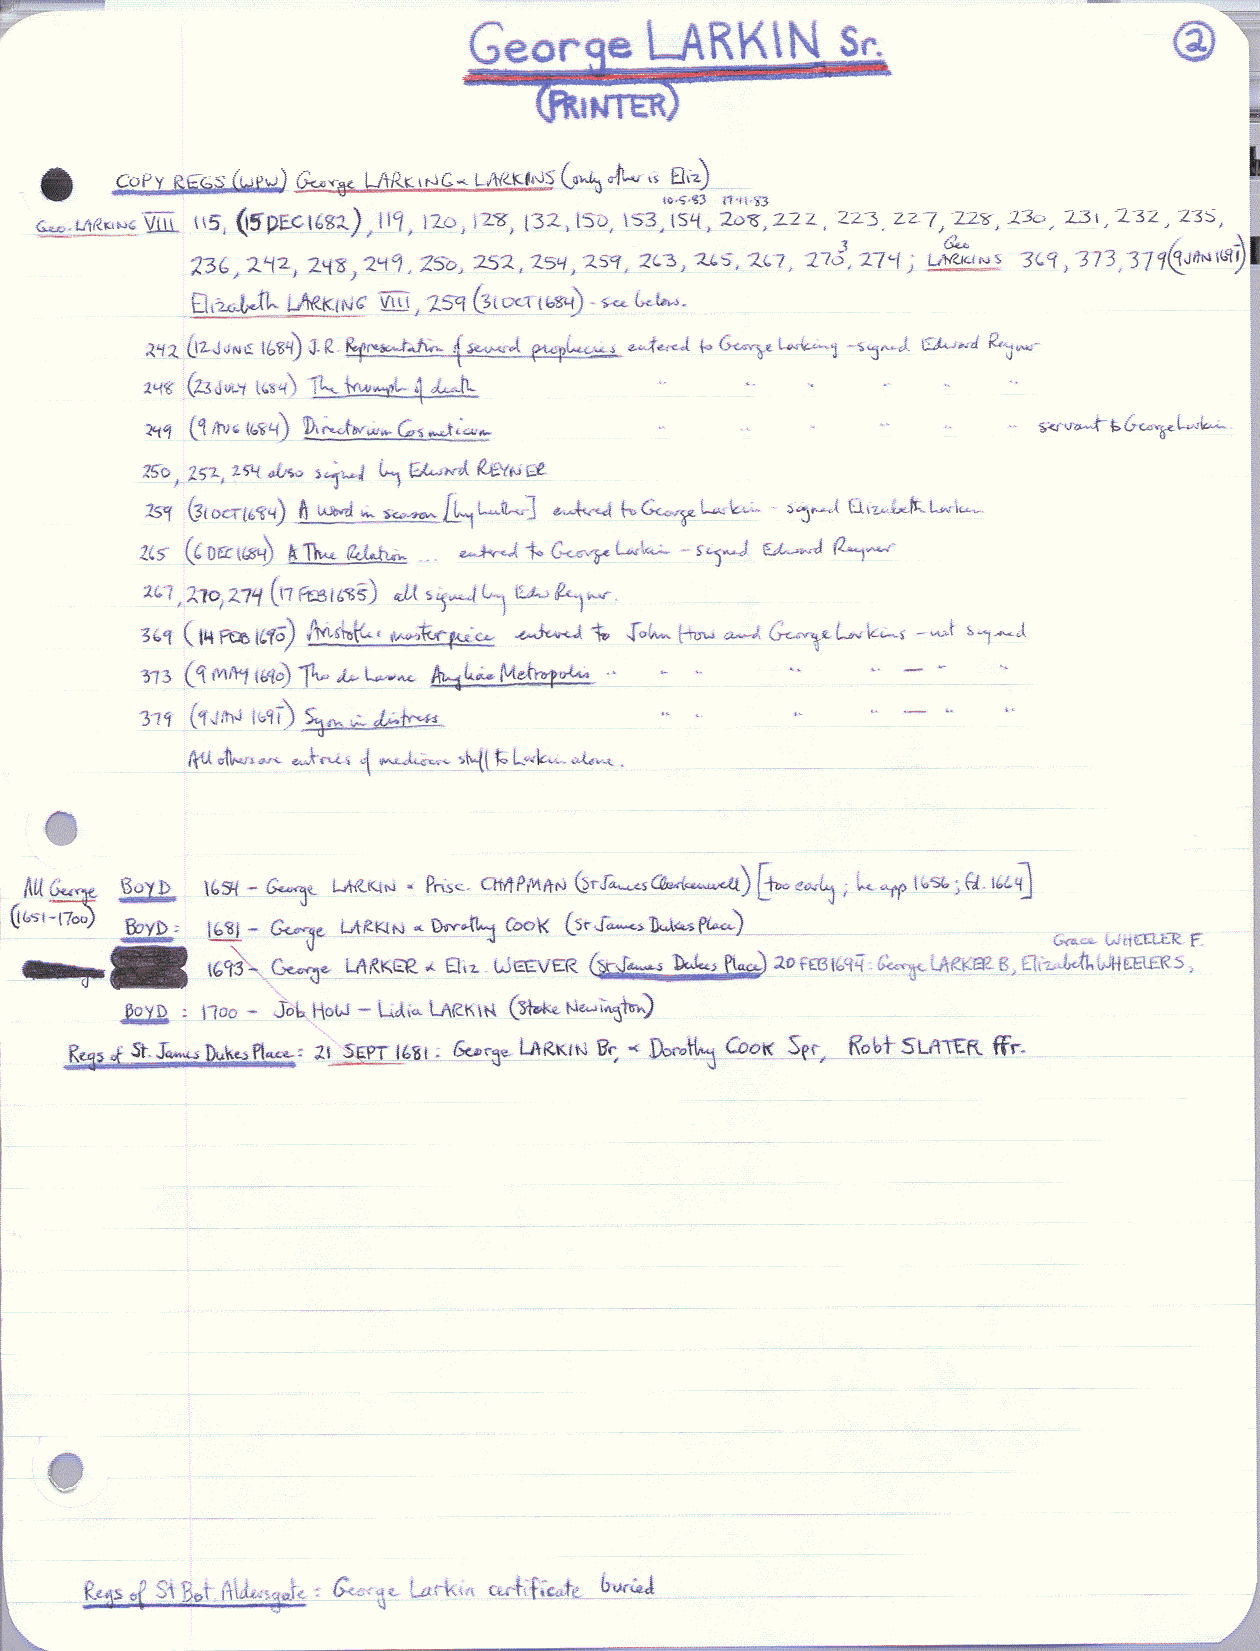 George LARKIN Sr.
②
(PRINTER)
COPY REGS (WPW) George LARKING & LARKINS (only other is Eliz)
10·5·83 17·11·83
Geo. LARKING VIII 115, (15 DEC 1682), 119, 120, 128, 132, 150, 153, 154, 208, 222, 223, 227, 228, 230, 231, 232, 235,
236, 242, 248, 249, 250, 252, 254, 259, 263, 265, 267, 270³, 274; Geo LARKINS 369, 373, 379 (9 JAN 1691)
Elizabeth LARKING VIII, 259 (31 OCT 1684) - see below.
242 (12 JUNE 1684) J.R. Representation of several prophecies entered to George Larking - signed Edward Reyner
248 (23 JULY 1684) The triumph of death " " " " " "
249 (9 AUG 1684) Directorium Cosmeticum " " " " " " servant to George Larkin.
250, 252, 254 also signed by Edward REYNER
259 (31 OCT 1684) A word in season [by Luther] entered to George Larkin - signed Elizabeth Larkin
265 (6 DEC 1684) A True Relation ... entered to George Larkin - signed Edward Reyner
267, 270, 274 (17 FEB 1685) all signed by Edw Reyner.
369 (14 FEB 1690) Aristotles masterpiece entered to John How and George Larkins - not signed
373 (9 MAY 1690) Tho de Laune Angliae Metropolis " " " " " — " "
379 (9 JAN 1691) Syon in distress " " " " — " "
All others are entries of mediocre stuff to Larkin alone.
All George BOYD 1654 - George LARKIN & Prisc. CHAPMAN (St James Clerkenwell) [too early; he app 1656; fd. 1664]
(1651-1700) BOYD: 1681 - George LARKIN & Dorothy COOK (St James Dukes Place)
Grace WHEELER F.
1693 - George LARKER & Eliz. WEEVER (St James Dukes Place) 20 FEB 1694: George LARKER B, Elizabeth WHEELER S,
BOYD: 1700 - Job HOW - Lidia LARKIN (Stoke Newington)
Regs of St. James Dukes Place: 21 SEPT 1681: George LARKIN Br, & Dorothy COOK Spr, Robt SLATER ffr.
Regs of St Bot. Aldersgate: George Larkin certificate buried